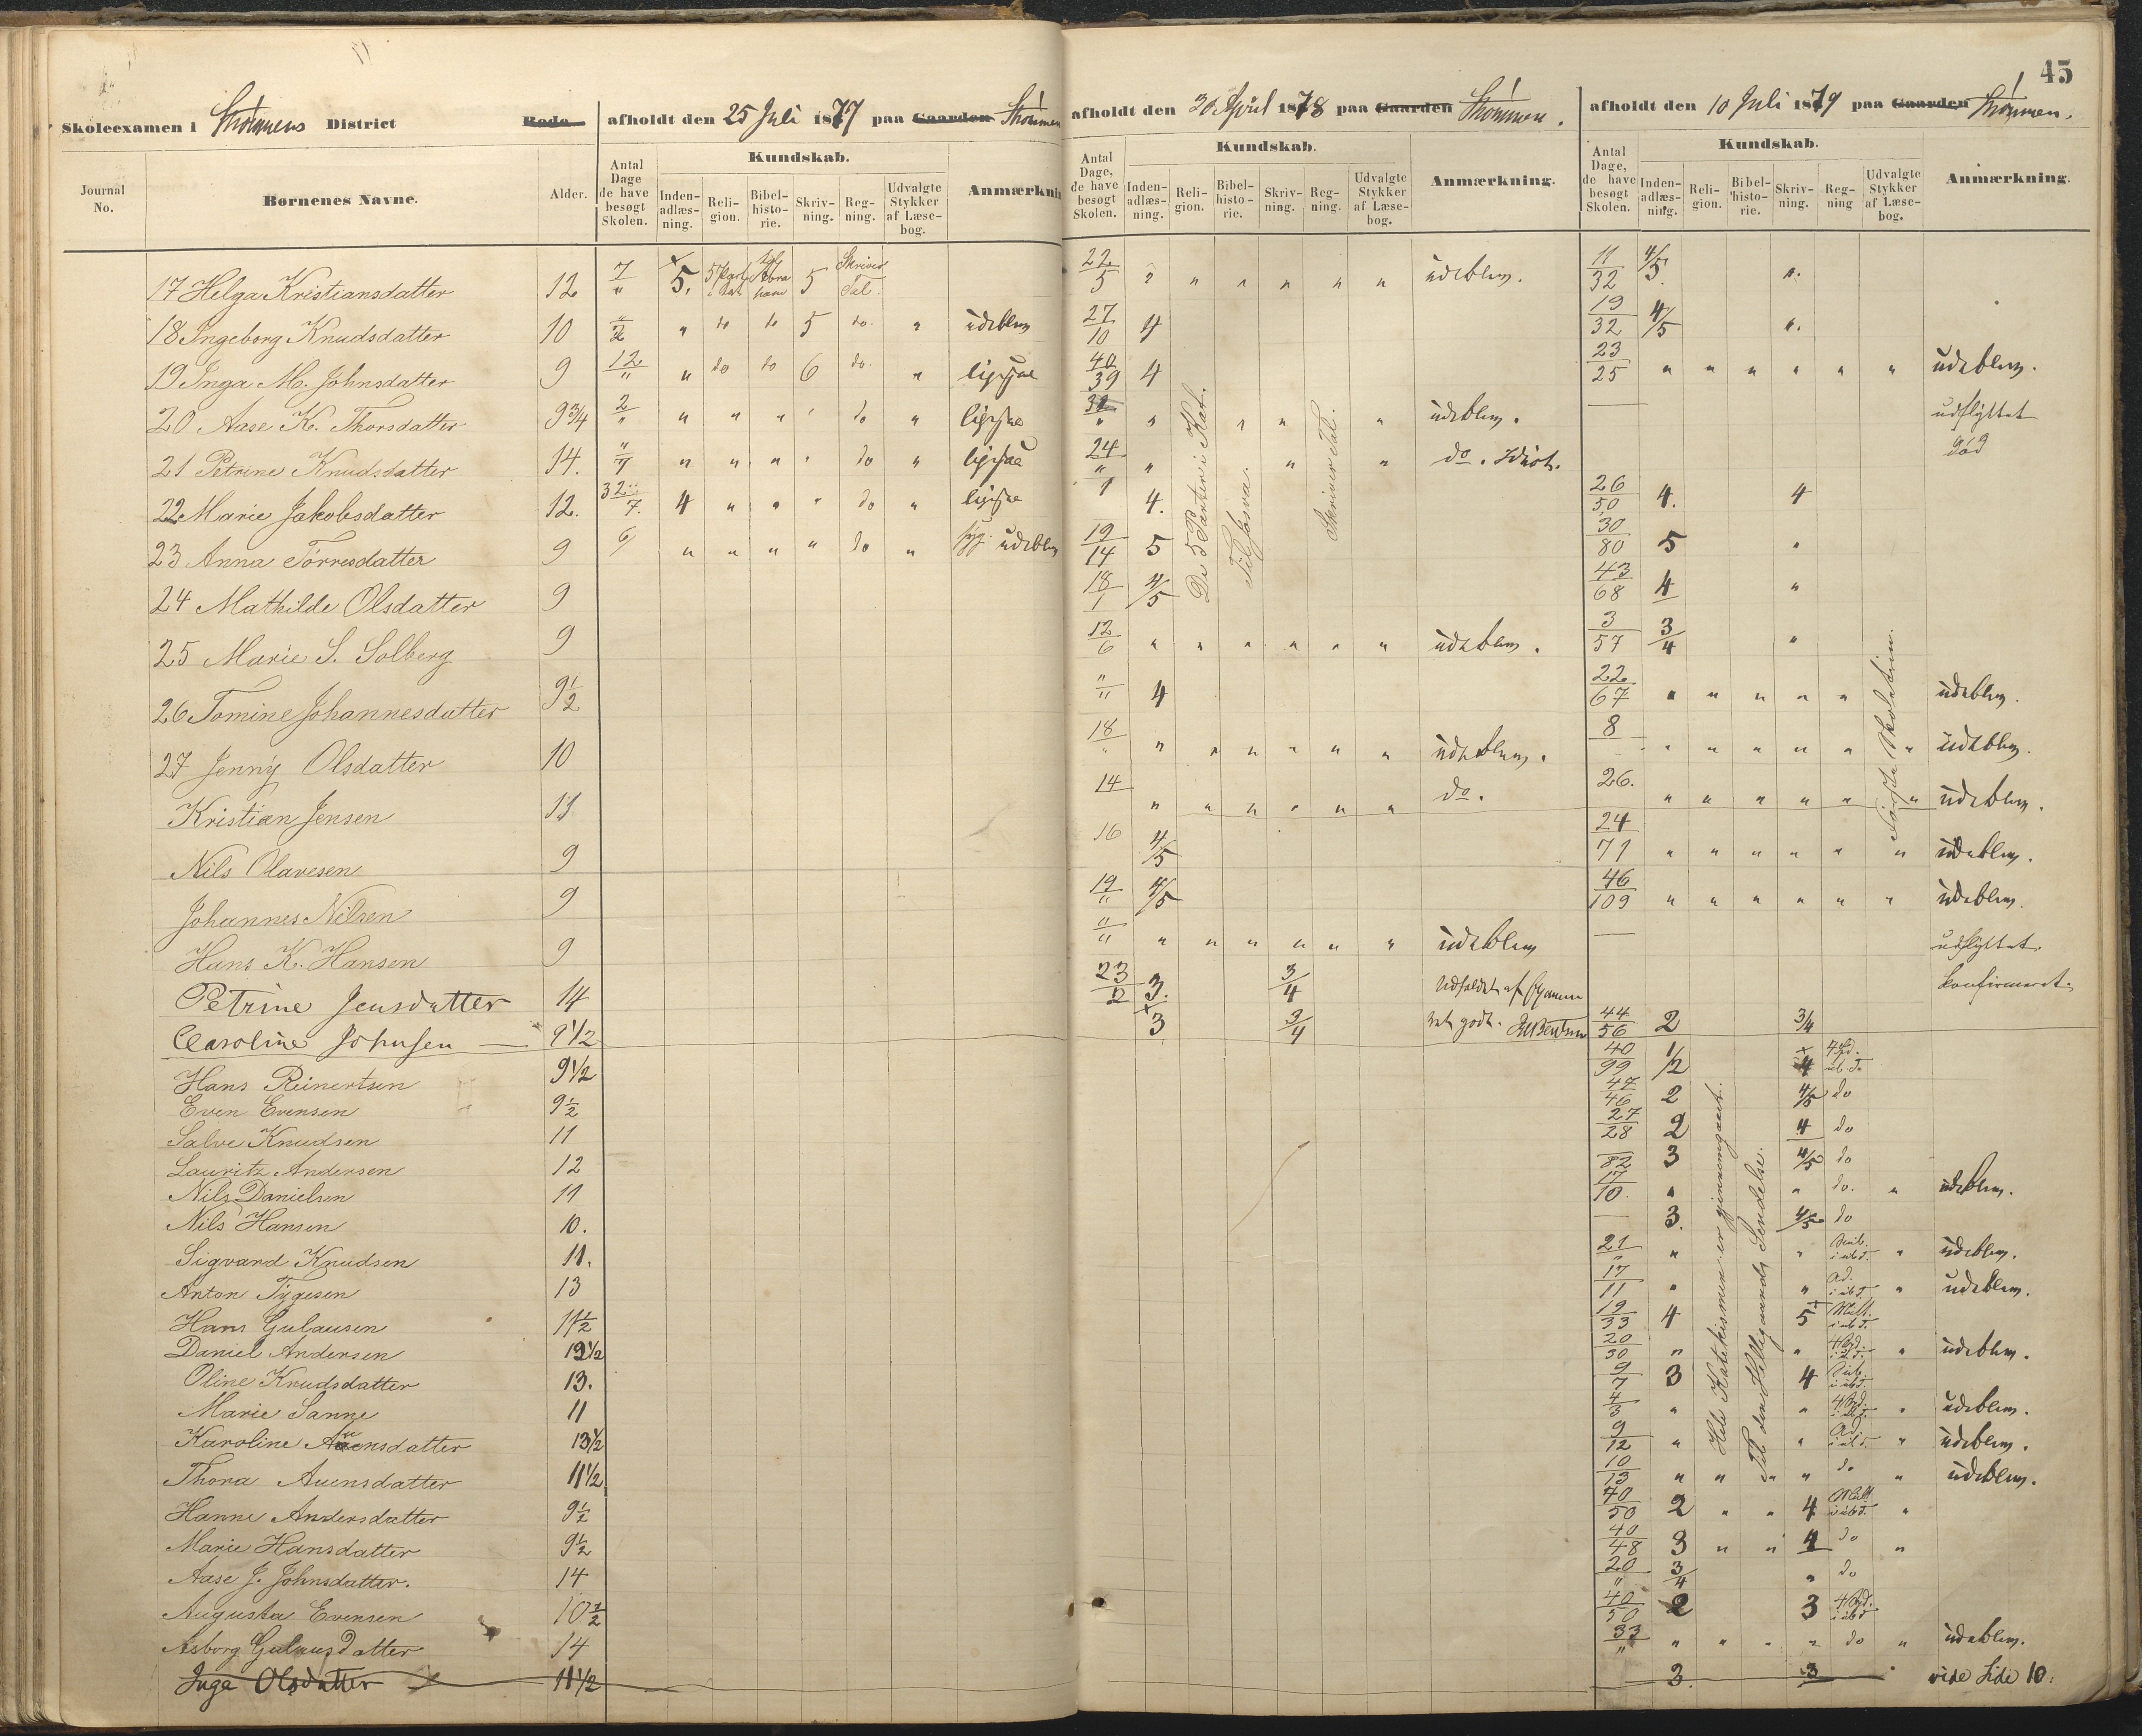 45
Skoleexamen i Strömmens District Rode
afholdt den 25 Juli 1877 paa Gaarden Strömmen
afholdt den 30 April 1878 paa Gaarden Strömmen.
afholdt den 10 Juli 1879 paa Gaarden Strömmen.
Journal No. Børnenes Navne. Alder. Antal Dage de have besøgt Skolen. Kundskab. Inden-adlæs-ning. Reli-gion. Bibel-histo-rie. Skriv-ning. Reg-ning. Udvalgte Stykker af Læse-bog. Anmærkning
Antal Dage, de have besøgt Skolen. Kundskab. Inden-adlæs-ning. Reli-gion. Bibel-histo-rie. Skriv-ning. Reg-ning. Udvalgte Stykker af Læse-bog. Anmærkning.
Antal Dage, de have besøgt Skolen. Kundskab. Inden-adlæs-ning. Reli-gion. Bibel-histo-rie. Skriv-ning. Reg-ning Udvalgte Stykker af Læse-bog. Anmærkning.
17 Helga Kristiansdatter 12 7/" 5. 5 Skriver Tal. 22/5 " " " " " " udeblev. 11/32 4/5 ".
18 Ingeborg Knudsdatter 10 "/2 " do do 5 do. " udeblev 27/10 4 19/32 4/5 ".
19 Inga M. Johnsdatter 9 12/" " do do 6 do. " ligesaa 40/39 4 23/25 " " " " " " udeblev.
20 Aase K. Thorsdatter 9 3/4 2/" " " " " do " ligesaa 32/" " " " " udeblev. — udflyttet
21 Petrine Knudsdatter 14. "/7 " " " " do " ligesaa 24/" " " " do. Idiot. død
22 Marie Jakobsdatter 12. 32/7. 4 " " " do " ligesaa 1 4. 26/50 4. 4
23 Anna Törresdatter 9 6/ " " " " do " syg. udeblev 19/14 5 30/80 5 "
24 Mathilde Olsdatter 9 18/1 4/5 43/68 4 "
25 Marie S. Solberg 9 12/6 " " " " " " udeblev. 3/57 3/4 "
26 Tomine Johannesdatter 9 1/2 "/" 4 22/67 " " " " " udeblev.
27 Jenny Olsdatter 10 18/" " " " " " " udeblev. 8 " " " " " " udeblev.
Kristian Jensen 11 14 " " " " " " do. 26. " " " " " " udeblev.
Nils Olavesen 9 16 4/5 24/71 " " " " " " udeblev.
Johannes Nilsen 9 19/" 4/5 46/109 " " " " " " udeblev.
Hans K. Hansen 9 "/" " " " " " " udeblev — udflyttet.
Petrine Jensdatter 14 23/2 3. 3/4 Udholdt af konfirmeret.
Caroline Johnsen — 9 1/2 3 3/4 godt. 44/56 2 3/4
Hans Reinertsen 9 1/2 40/99 1/2 4
Even Evensen 9 1/2 47/46 2 4/5 do
Salve Knudsen 11 27/28 2 4 do
Lauritz Andersen 12 /82 3 4/5 do
Nils Danielsen 11 17/10. " " do. " udeblev.
Nils Hansen 10. — 3. 4/5 do
Sigvard Knudsen 11. 21/" " " Sub. i ub T. " udeblev.
Anton Tygesen 13 17/11 " " Ad. i ub T. " udeblev.
Hans Gulausen 11 1/2 19/33 4 5 Mult. i ub T.
Daniel Andersen 12 1/2 20/30 " " " udeblev.
Oline Knudsdatter 13. 9/7 3 4 Sub. i ub T.
Marie Sanne 11 4/3 " " " udeblev.
Karoline Auensdatter 13 1/2 9/12 " " Ad. i ub T. " udeblev.
Thora Auensdatter 11 1/2 10/13 " " " " do " udeblev.
Hanne Andersdatter 9 1/2 40/50 2 " " 4 Mult i ub T. "
Marie Hansdatter 9 1/2 40/48 3 " " 4 do "
Aase J. Johnsdatter. 14 20/" 3/4 " do
Augusta Evensen 10 1/2 40/50 2 3 i ub T
Asborg Gulausdatter 14 33/" " " " " do " udeblev.
Inga Olsdatter 11 1/2 3. 3 " vide Side 10.
De 5 Parter i Kat.
Til Josva.
Skriver Tal.
Første Skoletrin.
Hele Katekismen er gjennemgaaet.
Til den Helligaands Sendelse.